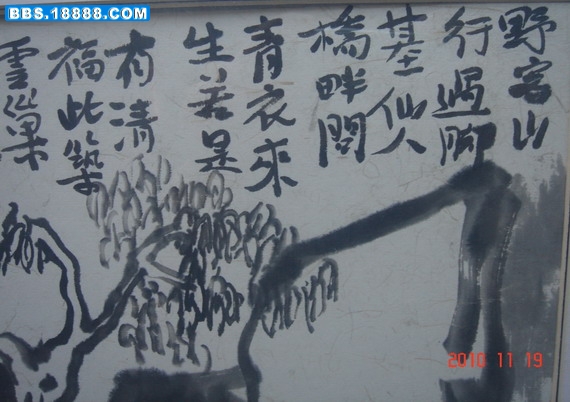 BBS.18888.COM
野客山
行過脚
棊仙人
橋畔問
青衣來
生若是
有清
福此築
雲巢
2010 11 19